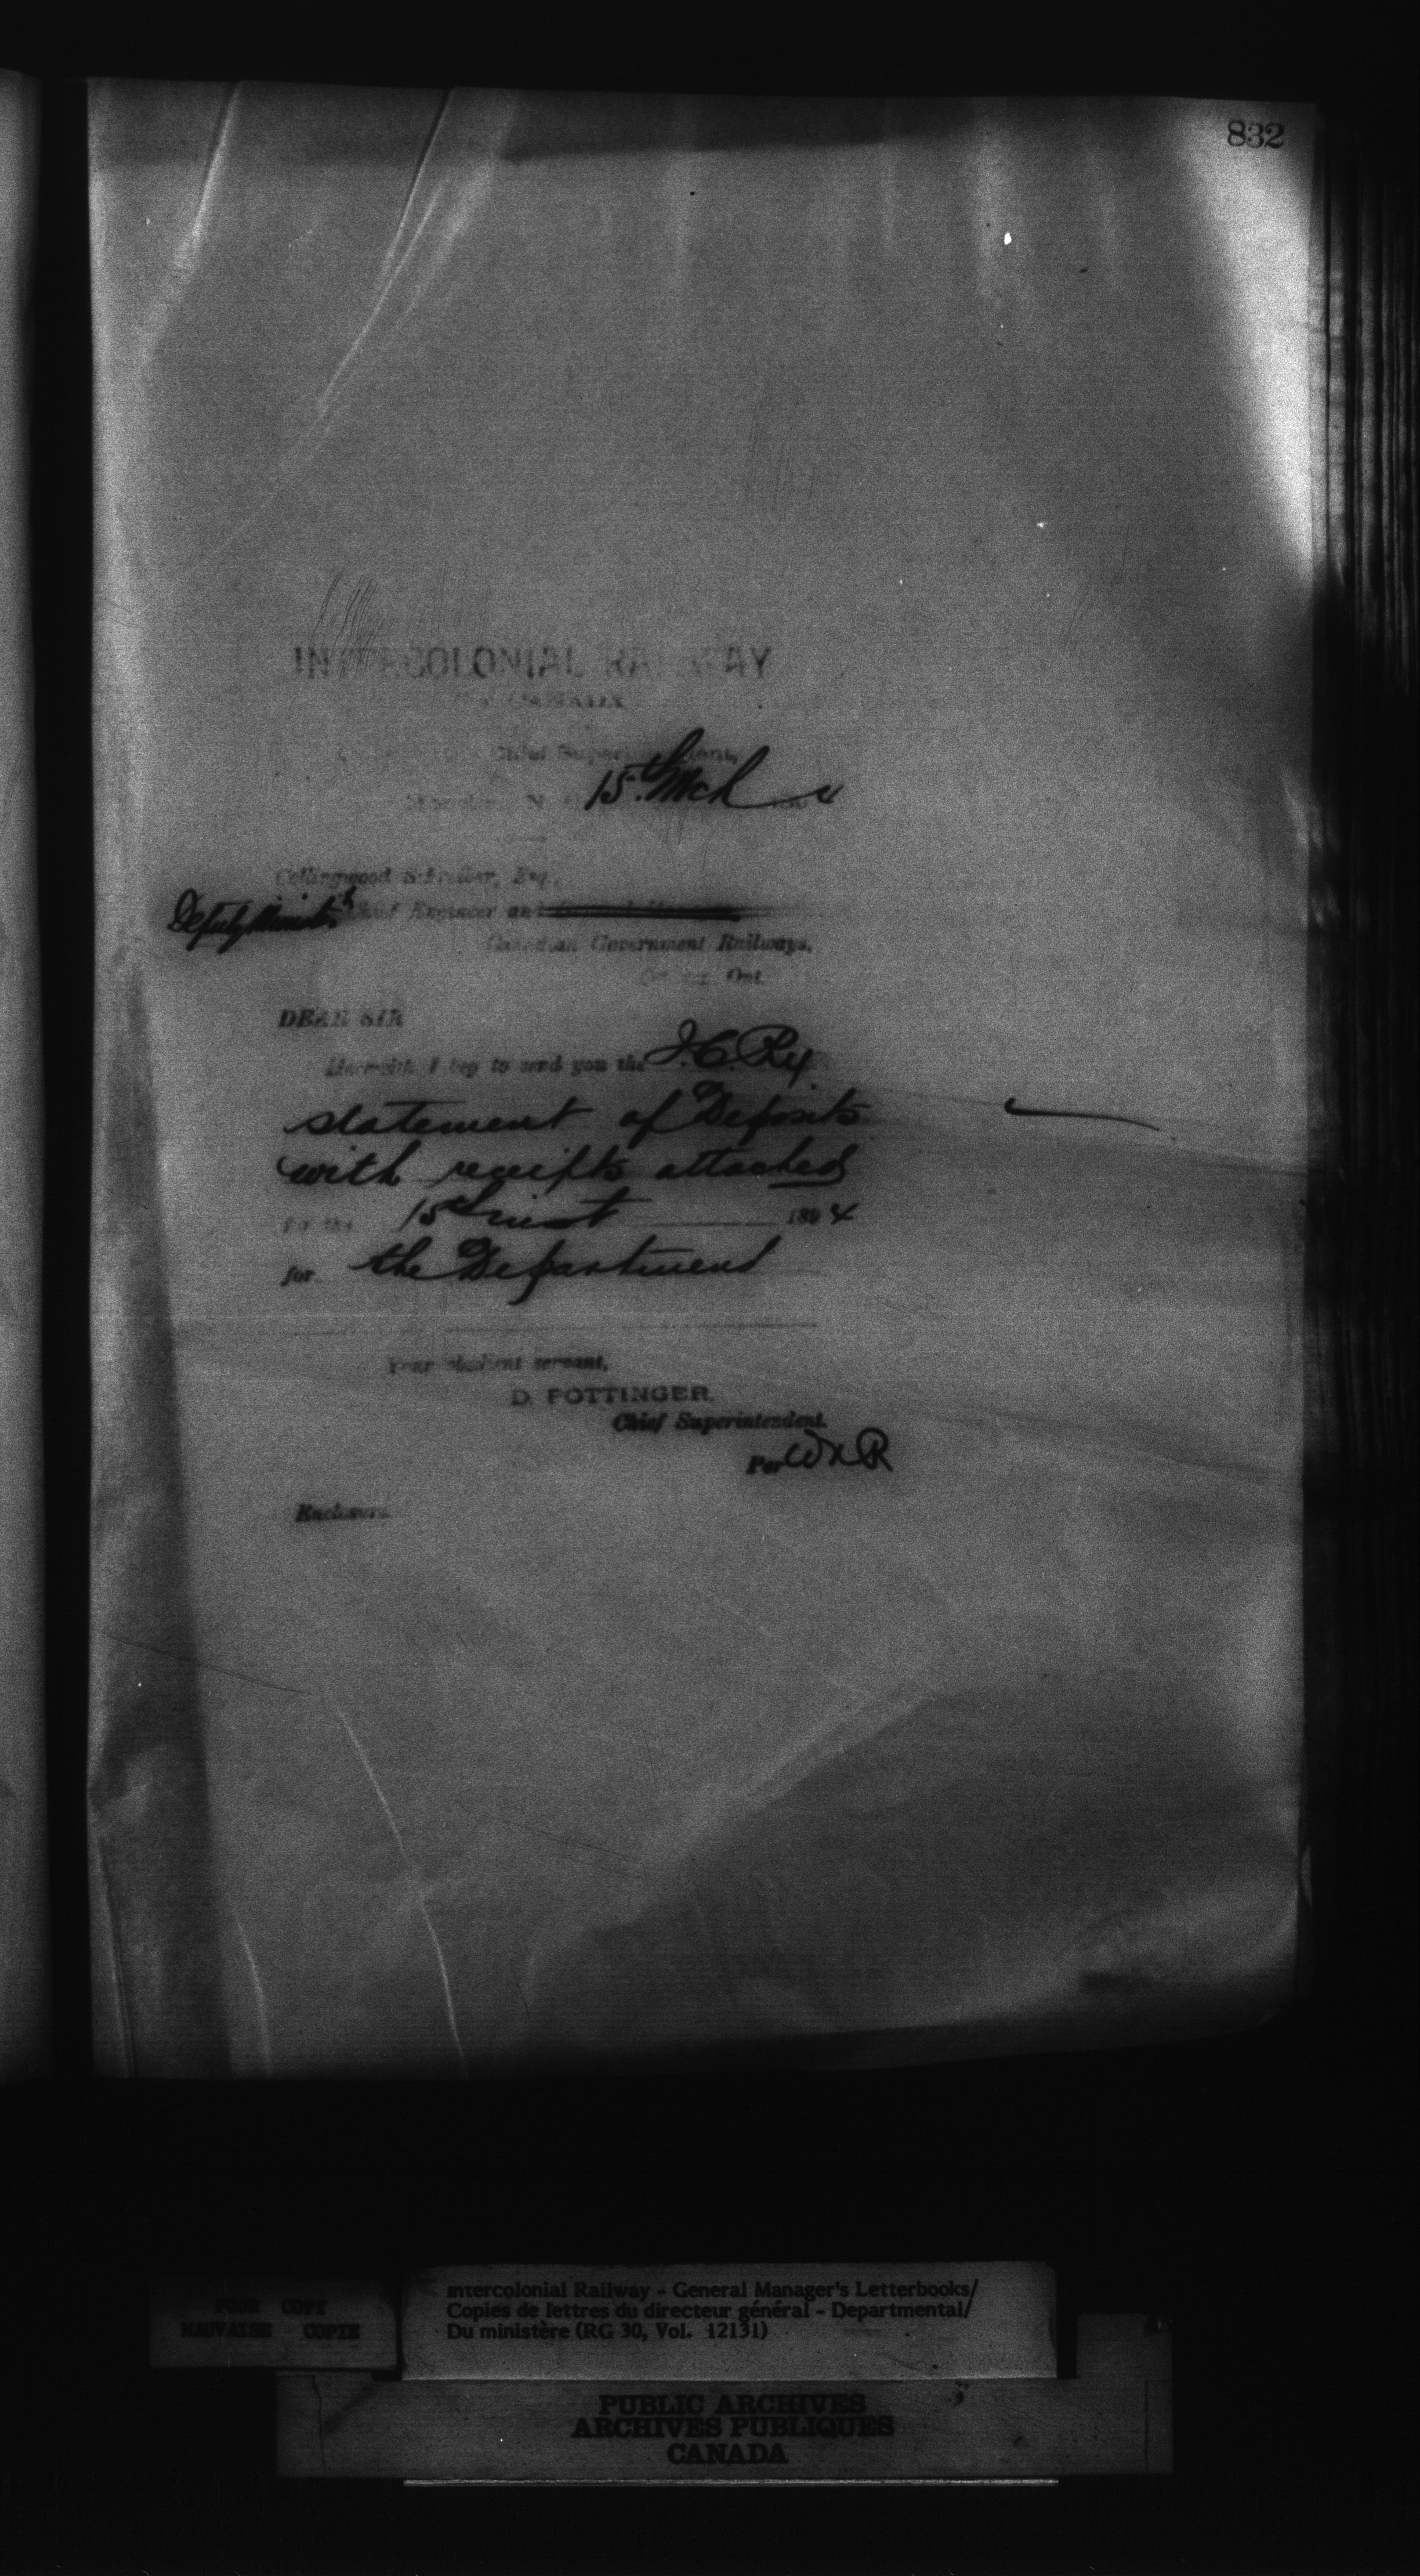 832
INTERCOLONIAL RAILWAY
Chief Superintendent,
15th Mch 4
Collingwood Schreiber, Esq.,
Deputy Minister & Chief Engineer and
Canadian Government Railways,
Ont
DEAR SIR
Herewith I beg to send you the I.C. Ry.
statement of Deposits
with receipts attached
for the 15th inst 1894
for the Department
Your obedient servant,
D. POTTINGER.
Chief Superintendent.
Per W N R
Enclosure.
POOR COPY
MAUVAISE COPIE
Intercolonial Railway - General Manager's Letterbooks/
Copies de lettres du directeur général - Departmental/
Du ministère (RG 30, Vol. 12131)
PUBLIC ARCHIVES
ARCHIVES PUBLIQUES
CANADA